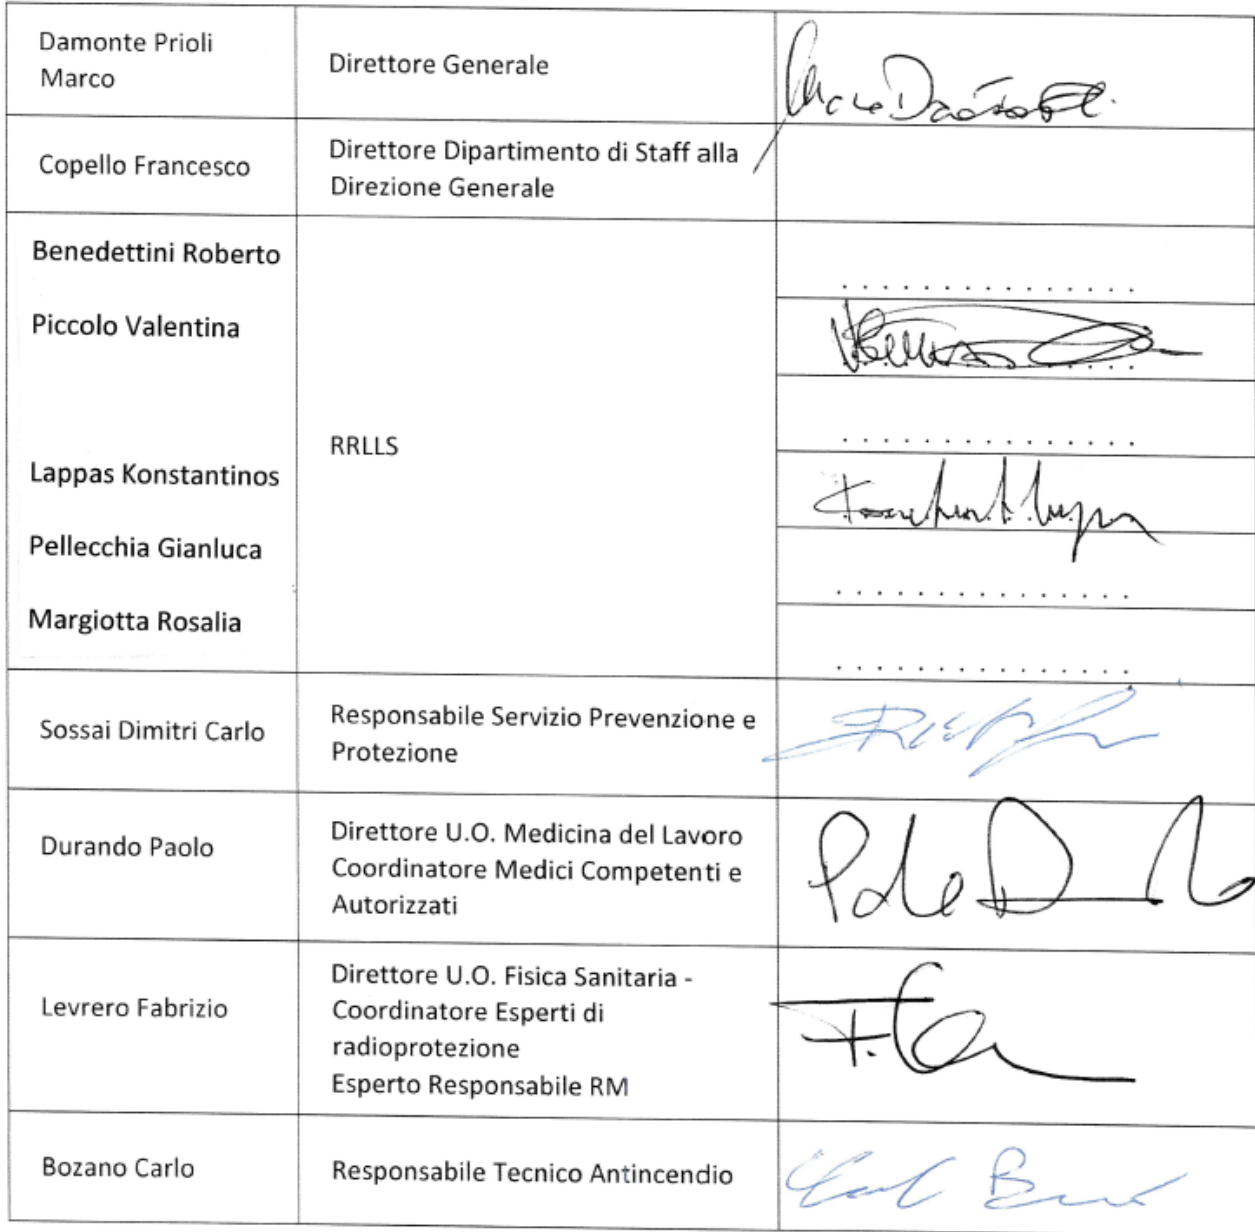 Damonte Prioli
Marco
Direttore Generale
Copello Francesco
Direttore Dipartimento di Staff alla
Direzione Generale
Benedettini Roberto
Piccolo Valentina
Lappas Konstantinos
Pellecchia Gianluca
Margiotta Rosalia
RRLLS
Sossai Dimitri Carlo
Responsabile Servizio Prevenzione e
Protezione
Durando Paolo
Direttore U.O. Medicina del Lavoro
Coordinatore Medici Competenti e
Autorizzati
Levrero Fabrizio
Direttore U.O. Fisica Sanitaria -
Coordinatore Esperti di
radioprotezione
Esperto Responsabile RM
Bozano Carlo
Responsabile Tecnico Antincendio